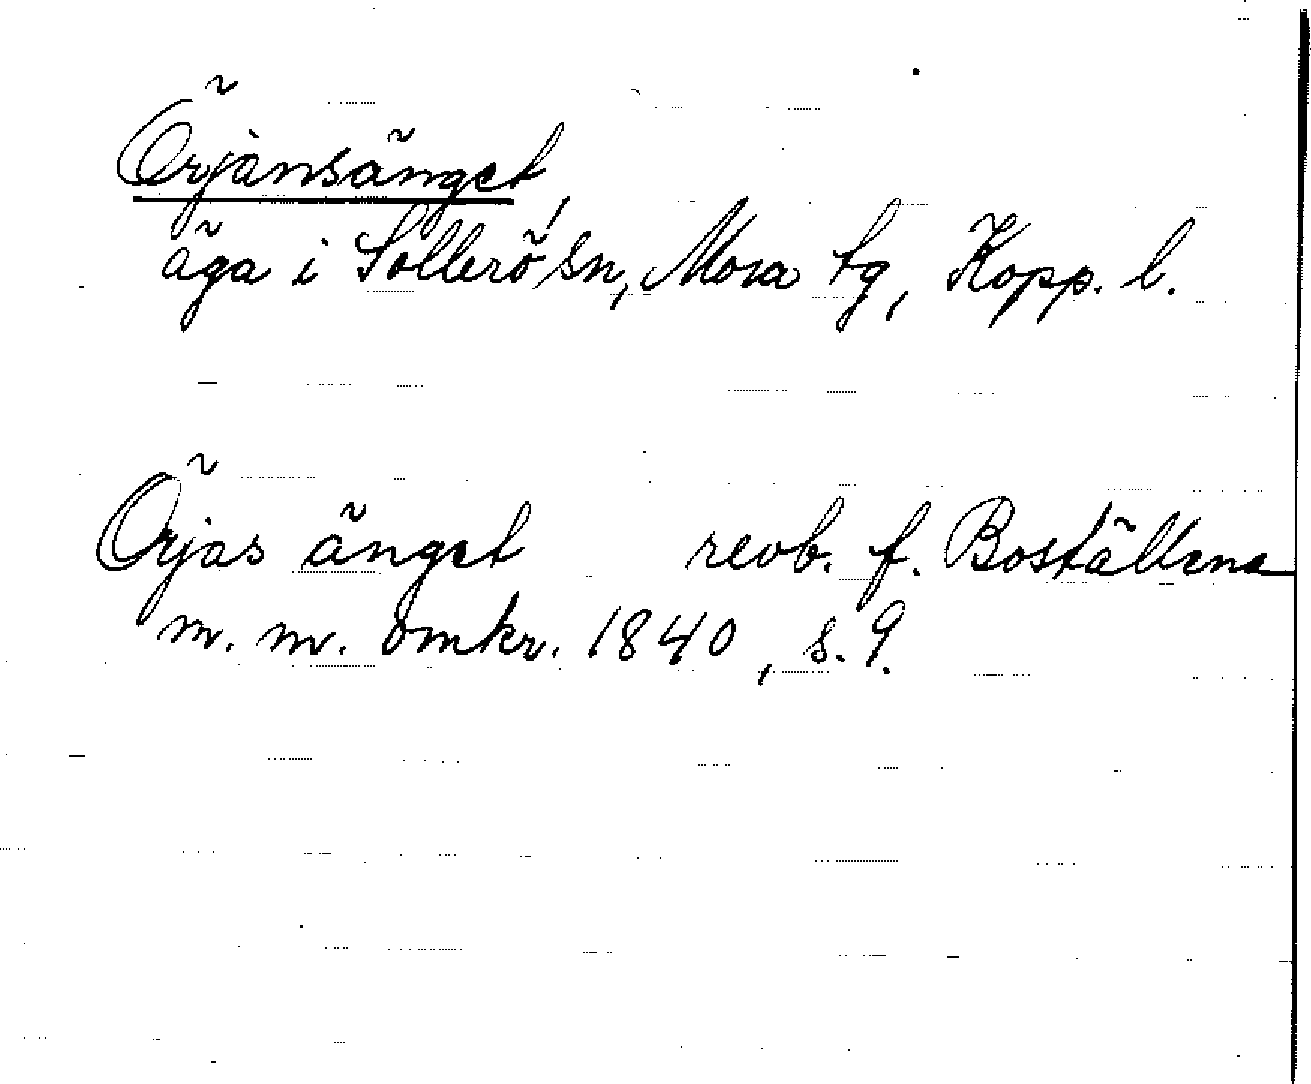 Örjansänget
äga i Sollerö sn, Mora tg, Kopp. l.
Örjas änget revb. f. Boställena
m. m. omkr. 1840, s. 9.